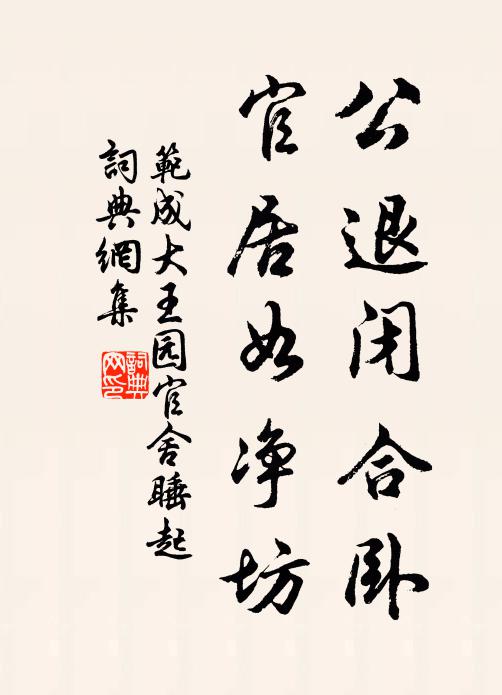 公退闭合卧
官居如净坊
範成大王园官舍睡起
詞典網集
詞典網印